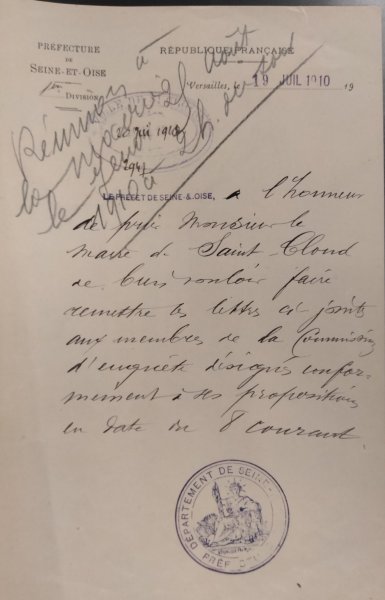 PRÉFECTURE
DE
SEINE-ET-OISE
1ère Division
RÉPUBLIQUE FRANÇAISE
Versailles, le 19 JUIL 1910 19
Réunion à
la mairie
le 25 août
1910 à 2h. du soir
1910
LE PRÉFET DE SEINE-&-OISE, a l'honneur
de prier Monsieur le
Maire de Saint-Cloud
de bien vouloir faire
remettre les lettres ci jointes
aux membres de la Commission
d'enquête désignés confor-
mément à ses propositions
en date du 8 courant.
DÉPARTEMENT DE SEINE-
PRÉF